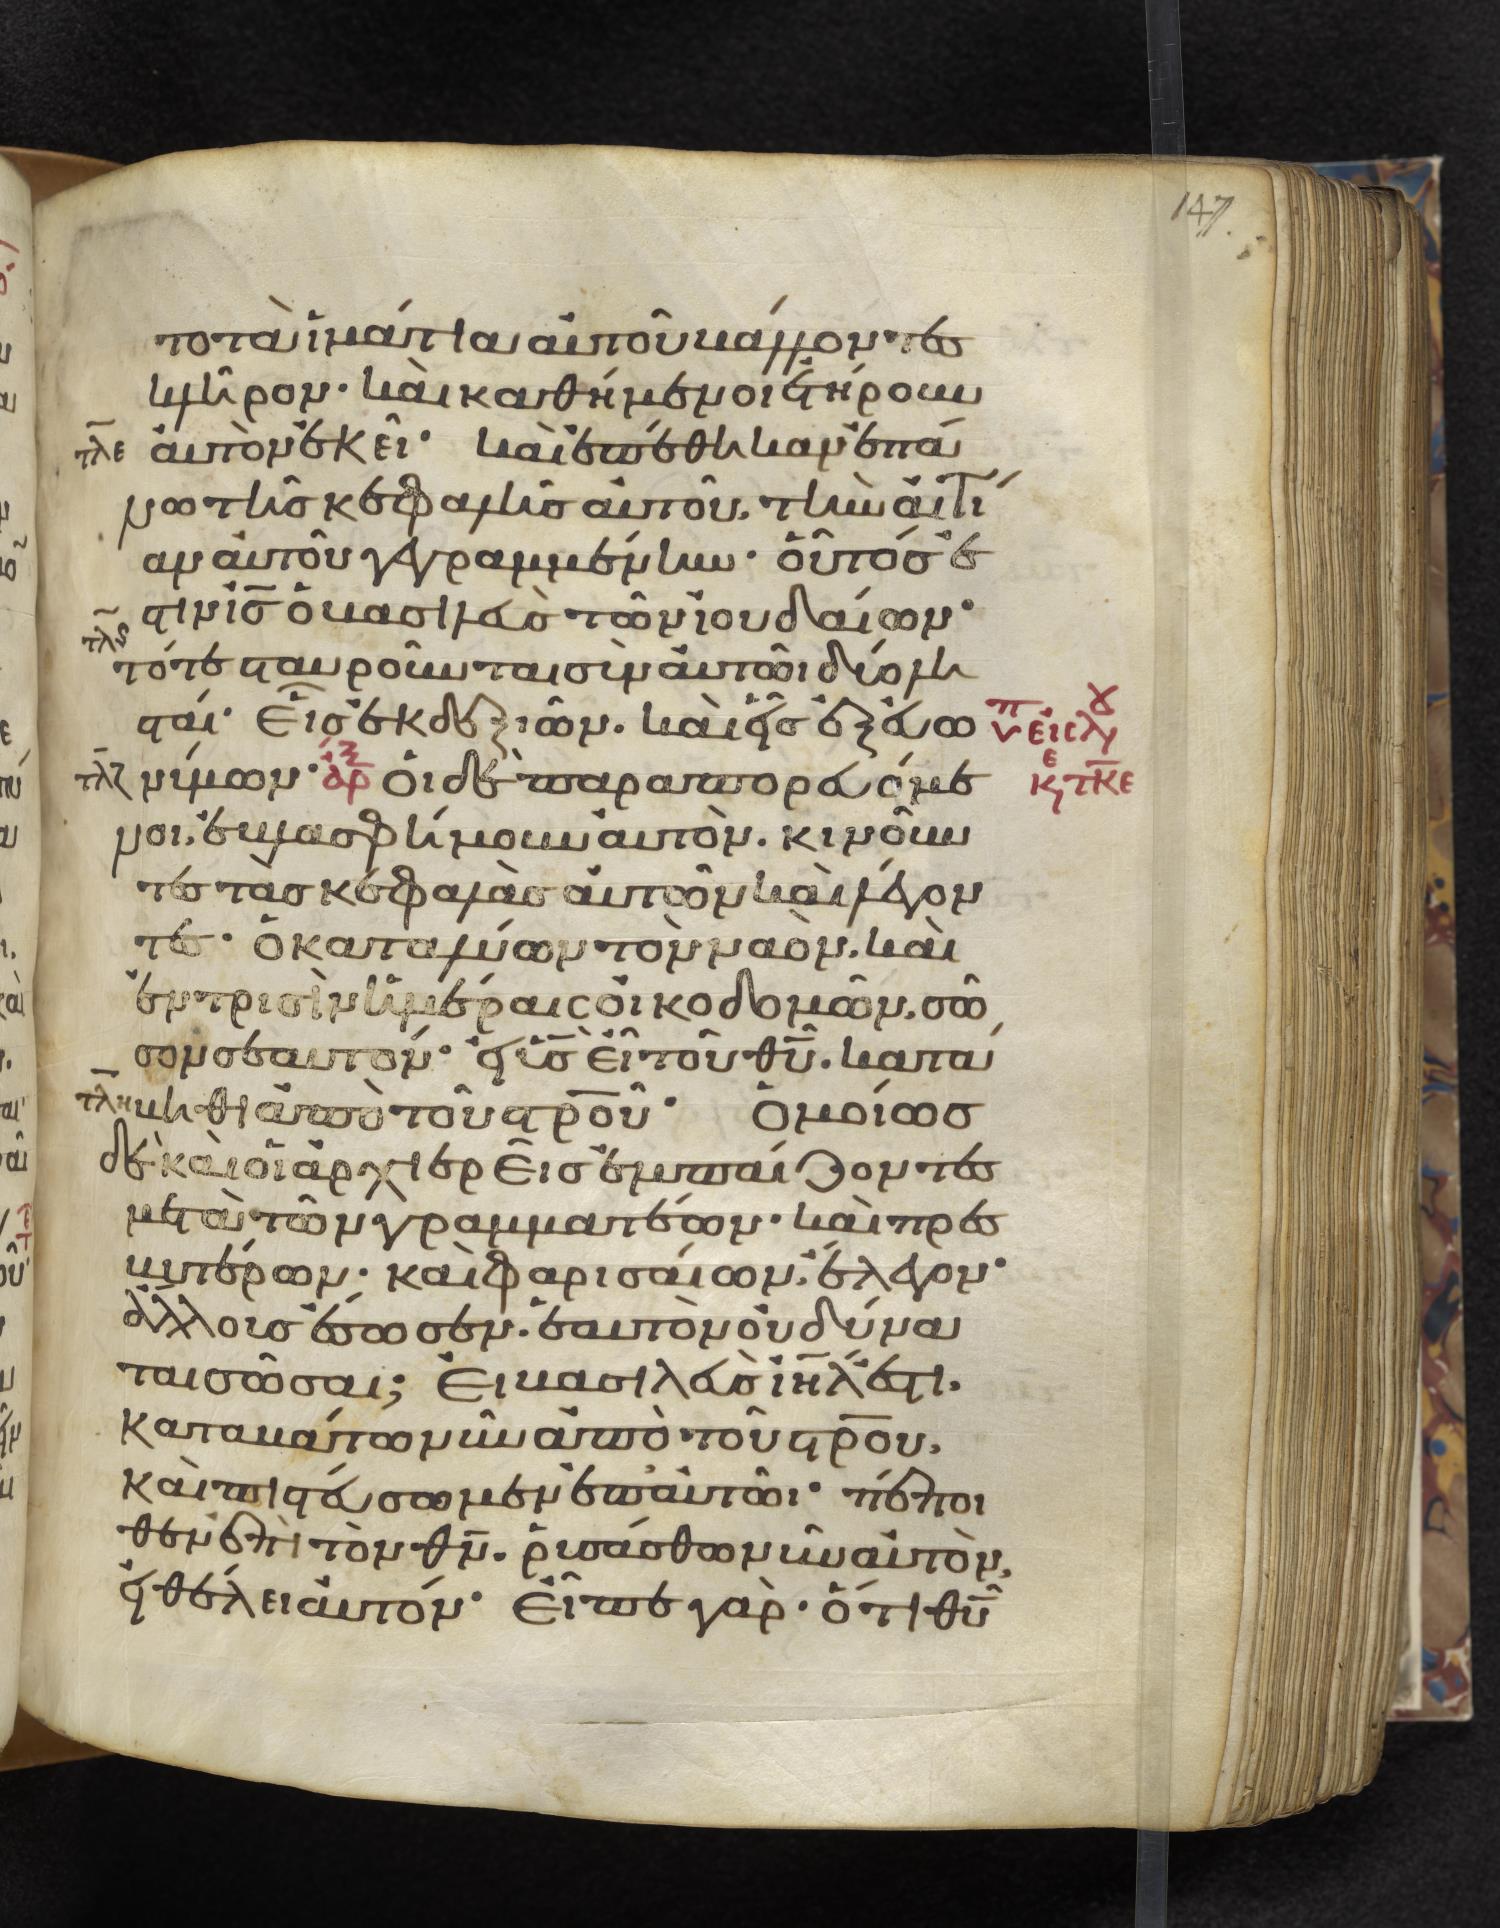 147
το τὰ ἱμάτια αὐτοῦ βάλλοντες
κλῆρον· καὶ καθήμενοι ἐτήρουν
τλε αὐτὸν ἐκεῖ· καὶ ἐπέθηκαν ἐπά
νω τῆς κεφαλῆς αὐτοῦ, τὴν αἰτί
αν αὐτοῦ γεγραμμένην· οὗτός ἐ
στιν ις ὁ βασιλεὺς τῶν ἰουδαίων·
τλς τότε σταυροῦνται σὺν αὐτῶι δύο λη
σταί· εἷς ἐκ δεξιῶν. καὶ εἷς ἐξ εὐω
τλζ νύμων· ἀρξ Οἱ δὲ παραπορευόμε
νοι, ἐβλασφήμουν αὐτὸν. κινοῦν
τες τὰς κεφαλὰς αὐτῶν καὶ λέγον
τες· ὁ καταλύων τὸν ναὸν, καὶ
ἐν τρισὶν ἡμέραις οἰκοδομῶν, σῶ
σον σεαυτόν· εἰ υἱς εἶ τοῦ θυ. κατά
τλη βηθι ἀπὸ τοῦ στρου· Ὁμοίως
δὲ καὶ οἱ ἀρχιερεῖς ἐμπαίζοντες
μετὰ τῶν γραμματέων· καὶ πρες
βυτέρων· καὶ φαρισαίων, ἔλεγον·
ἄλλους ἔσωσεν. ἑαυτὸν οὐ δύνα
ται σῶσαι; Εἰ βασιλεὺς ιηλ ἐστι.
καταβάτω νῦν ἀπὸ τοῦ στρου,
καὶ πιστεύσωμεν ἐπ' αὐτῶι· πέποι
θεν ἐπὶ τὸν θν. ῥυσάσθω νῦν αὐτὸν,
εἰ θέλει αὐτόν· εἶπε γὰρ· ὅτι θυ